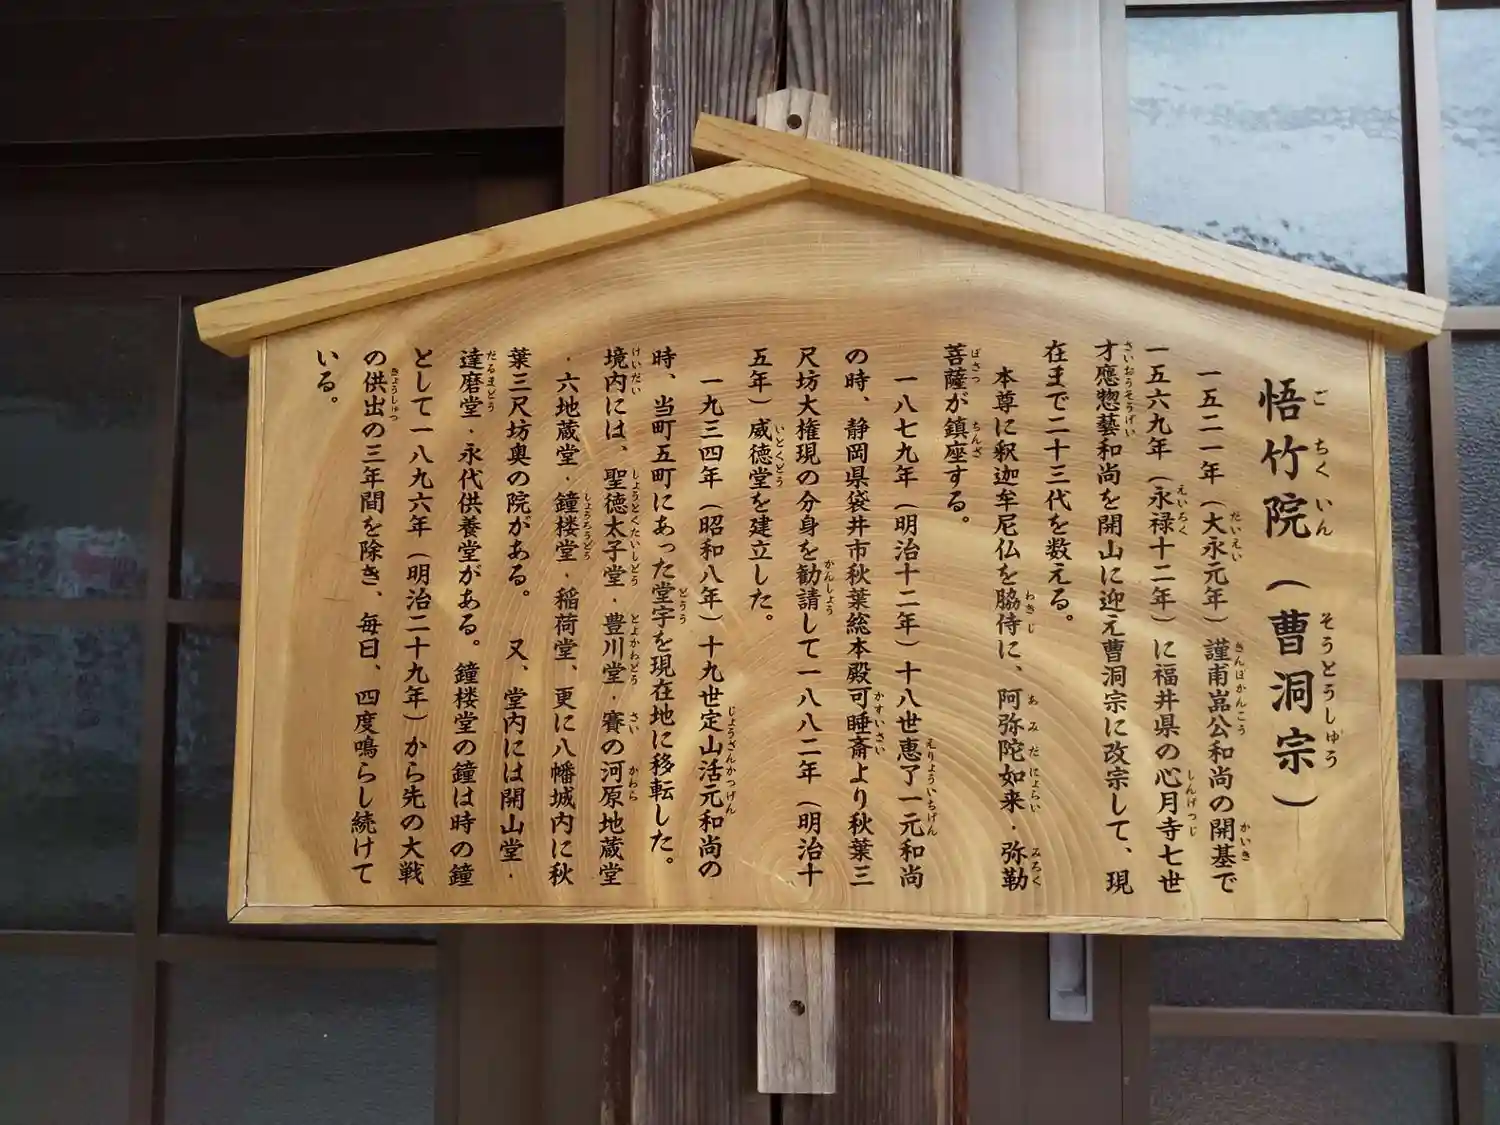 悟竹院(曹洞宗)
一五二一年(大永元年)謹甫嵓公和尚の開基で
一五六九年(永禄十二年)に福井県の心月寺七世
才應惣藝和尚を開山に迎え曹洞宗に改宗して、現
在まで二十三代を数える。
本尊に釈迦牟尼仏を脇侍に、阿弥陀如来・弥勒
菩薩が鎮座する。
一八七九年(明治十二年)十八世恵了一元和尚
の時、静岡県袋井市秋葉総本殿可睡斎より秋葉三
尺坊大権現の分身を勧請して一八八二年(明治十
五年)威徳堂を建立した。
一九三四年(昭和八年)十九世定山活元和尚の
時、当町五町にあった堂宇を現在地に移転した。
境内には、聖徳太子堂・豊川堂・賽の河原地蔵堂
・六地蔵堂・鐘楼堂・稲荷堂、更に八幡城内に秋
葉三尺坊奥の院がある。 又、堂内には開山堂・
達磨堂・永代供養堂がある。鐘楼堂の鐘は時の鐘
として一八九六年(明治二十九年)から先の大戦
の供出の三年間を除き、毎日、四度鳴らし続けて
いる。